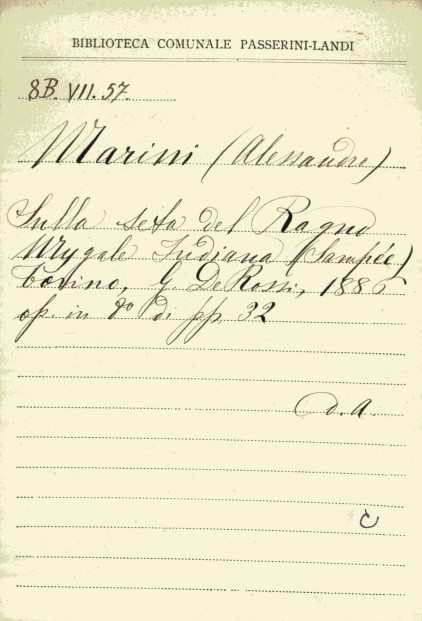 BIBLIOTECA COMUNALE PASSERINI-LANDI
8B. VII. 57.
Marini (Alessandro)
Sulla seta del Ragno
Mygale Indiana (Sampée)
Torino, G. De Rossi, 1886
op. in 8º di pp. 32
d. A.
C